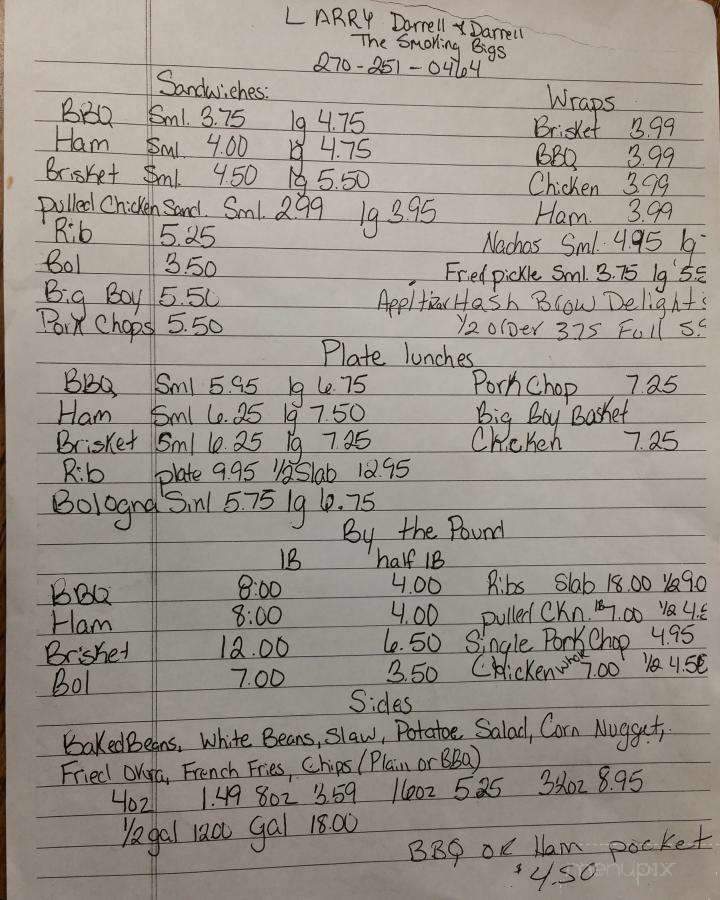 LARRY Darrell & Darrell
The Smoking Bigs
270-251-0464
Sandwiches:
BBQ Sml. 3.75 lg 4.75
Ham Sml. 4.00 lg 4.75
Brisket Sml. 4.50 lg 5.50
pulled Chicken Sand. Sml. 2.99 lg 3.95
Rib 5.25
Bol 3.50
Big Boy 5.50
Pork Chops 5.50
Wraps
Brisket 3.99
BBQ 3.99
Chicken 3.99
Ham. 3.99
Nachos Sml. 4.95 lg
Fried pickle Sml. 3.75 lg
Appitizer Hash Brow Delights
1/2 order 3.75 Full
Plate lunches
BBQ Sml 5.95 lg 6.75
Ham Sml 6.25 lg 7.50
Brisket Sml 6.25 lg 7.25
Rib plate 9.95 1/2 Slab 12.95
Bologna Sml 5.75 lg 6.75
Pork Chop 7.25
Big Boy Basket
Chicken 7.25
By the Pound
lB half lB
BBQ 8:00 4.00
Ham 8:00 4.00
Brisket 12.00 6.50
Bol 7.00 3.50
Ribs Slab 18.00 1/2 9.0
pulled Ckn. lB 7.00 1/2
Single Pork Chop 4.95
Chicken whole 7.00 1/2
Sides
Baked Beans, White Beans, Slaw, Potatoe Salad, Corn Nugget,
Fried Okra, French Fries, Chips (Plain or BBQ)
4oz 1.49 8oz 3.59 16oz 5.25 32oz 8.95
1/2 gal 1200 Gal 18.00
BBQ or Ham pocket
$4.50
menupix